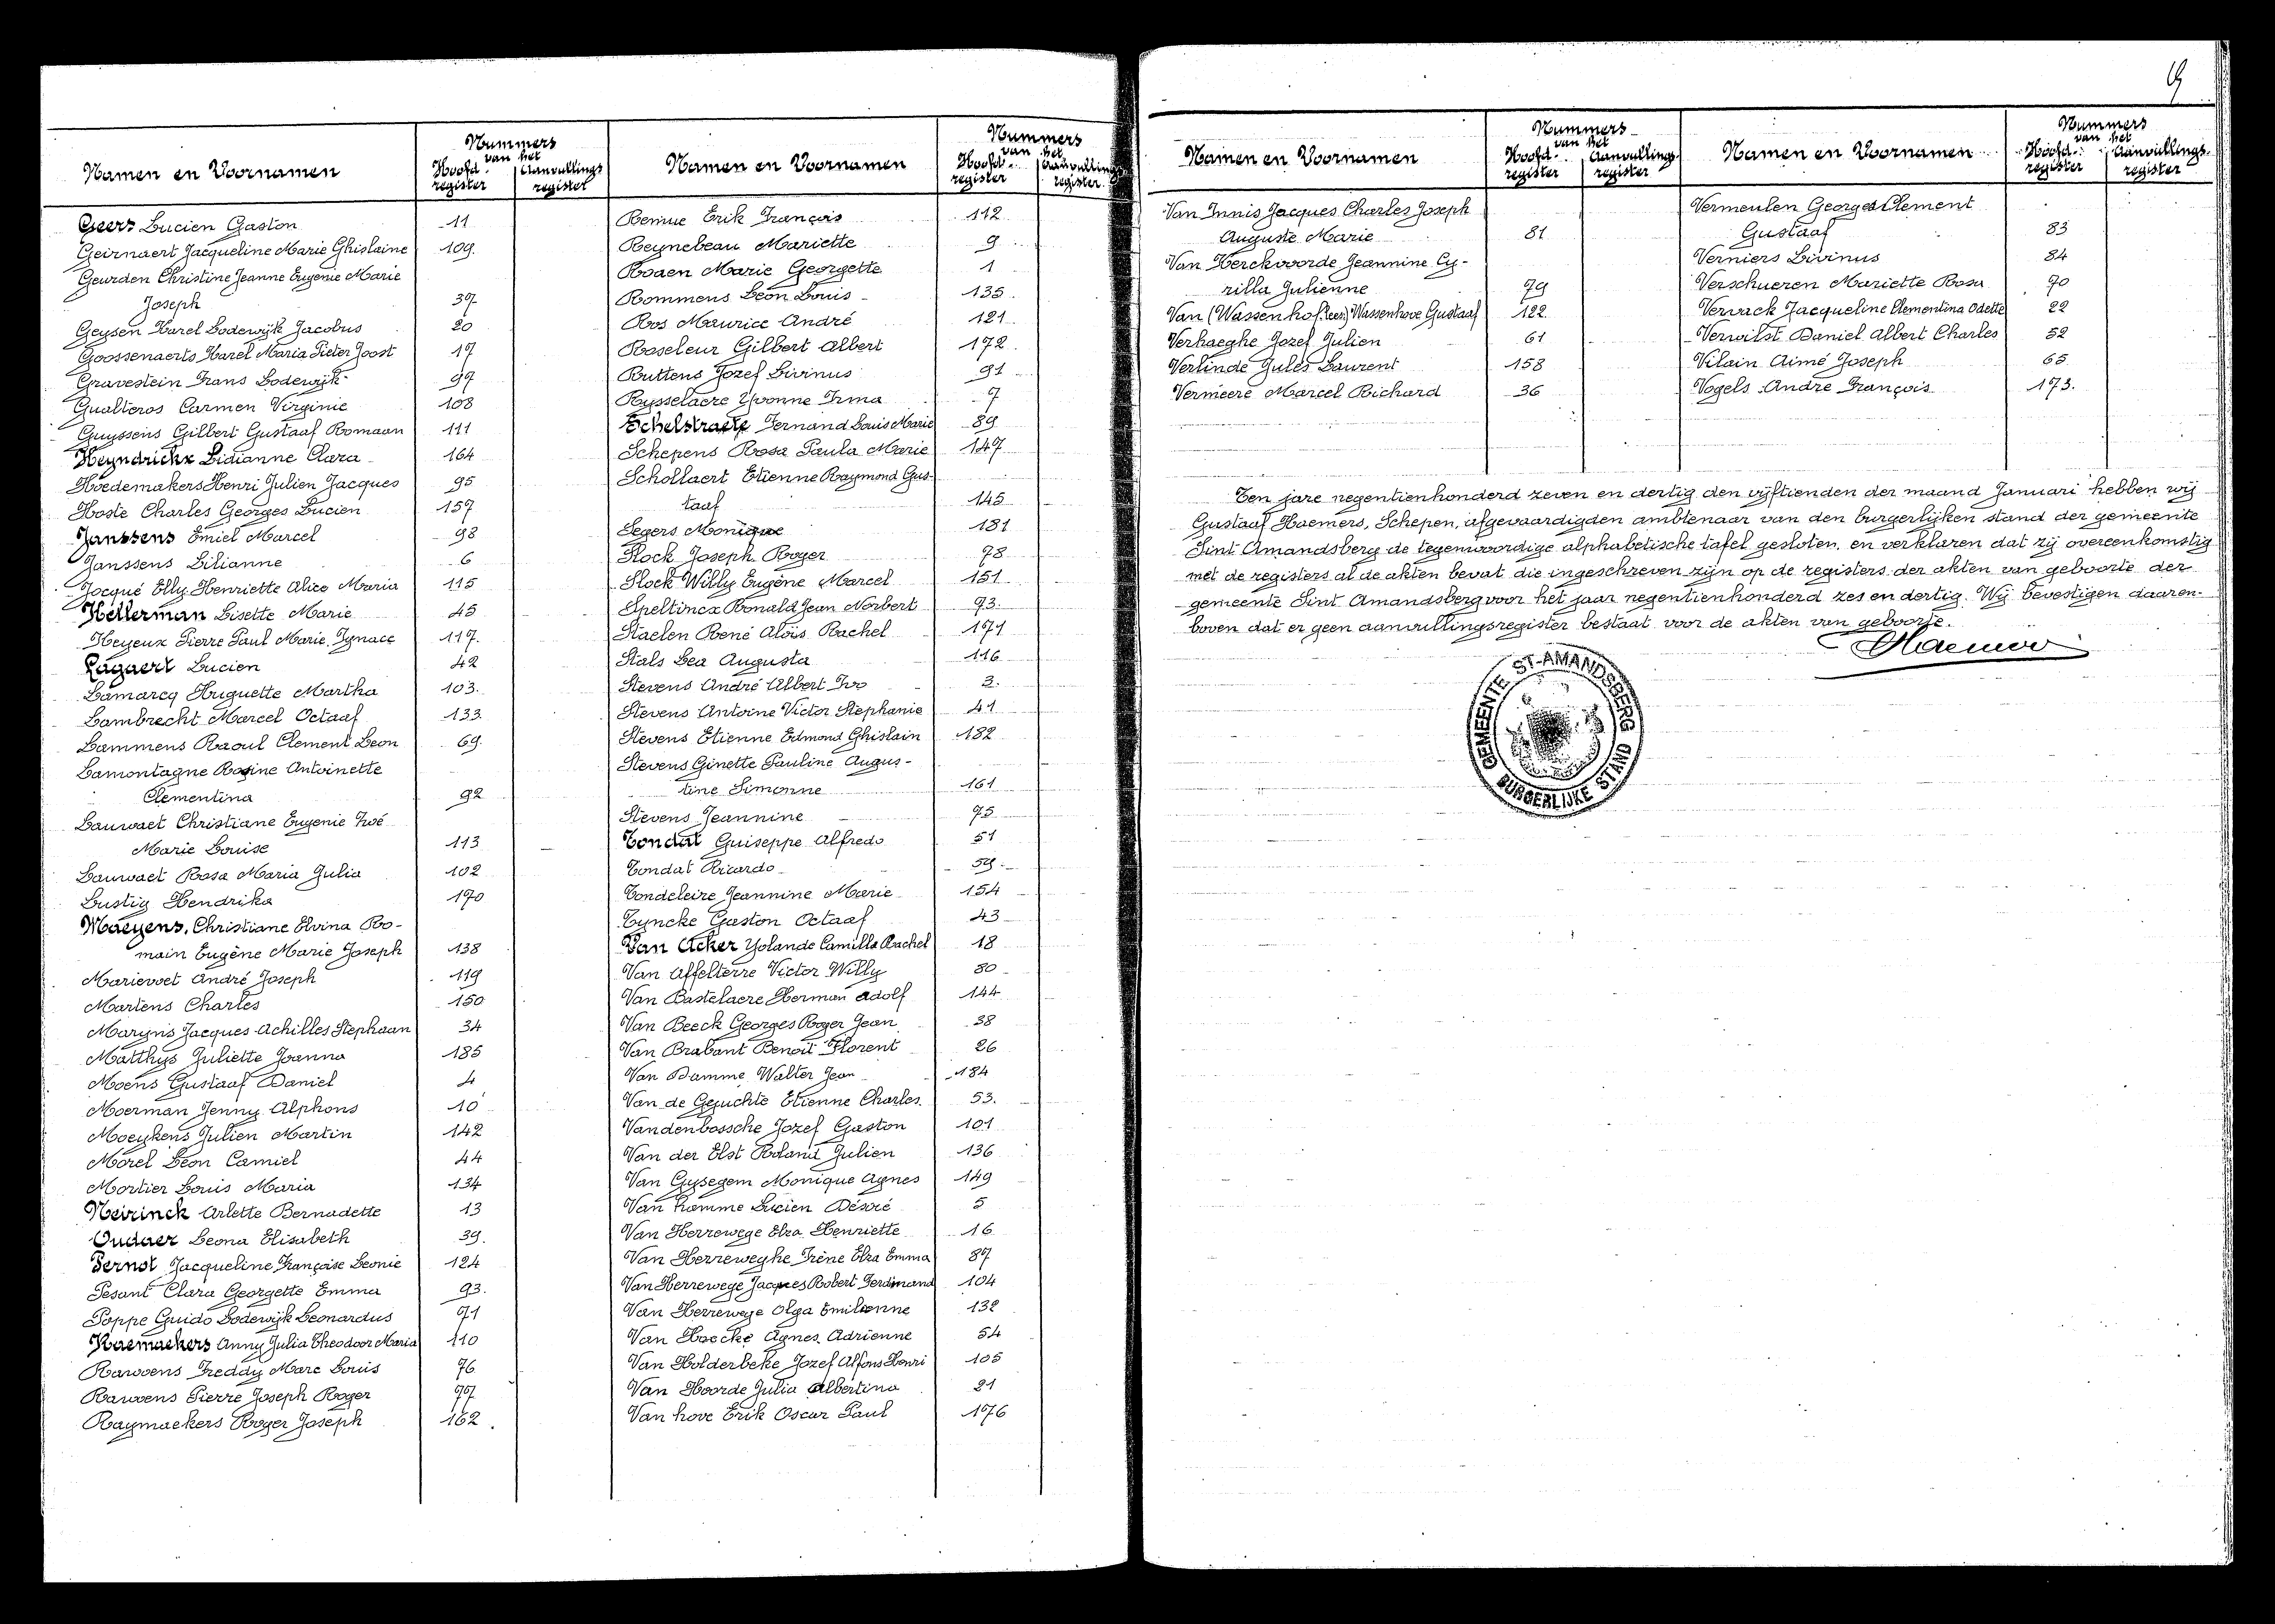 19
Namen en Voornamen
Nummers
van het
Hoofd-
register
Aanvullings
register
Geers Lucien Gaston 11
Geirnaert Jacqueline Marie Ghislaine 109.
Geurden Christine Jeanne Eugenie Marie
Joseph 37
Geysen Karel Lodewijk Jacobus 20
Goossenaerts Karel Maria Pieter Joost 17
Gravestein Frans Lodewijk 99
Gualteros Carmen Virginie 108
Guyssens Gilbert Gustaaf Romaan 111
Heyndrickx Lidianne Clara 164
Hoedemakers Henri Julien Jacques 95
Hoste Charles Georges Lucien 157
Janssens Emiel Marcel 98
Janssens Lilianne 6
Jocqué Elly Henriette Alice Maria 115
Kellerman Lisette Marie 45
Keyeux Pierre Paul Marie Ignace 117.
Lagaert Lucien 42
Lamarcq Huguette Martha 103.
Lambrecht Marcel Octaaf 133
Lammens Raoul Clement Leon 69.
Lamontagne Rosine Antoinette
Clementina 92
Lauwaet Christiane Eugenie Zoé
Marie Louise 113
Lauwaet Rosa Maria Julia 102
Lustig Hendrika 170
Maeyens, Christiane Elvina Ro-
main Eugène Marie Joseph 138
Marievoet André Joseph 119
Martens Charles 150
Maryns Jacques Achilles Stephaan 34
Matthys Juliette Joanna 185
Moens Gustaaf Daniel 4
Moerman Jenny Alphons 10
Moeykens Julien Martin 142
Morel Leon Camiel 44
Mortier Louis Maria 134
Neirinck Arlette Bernadette 13
Oudaer Leona Elisabeth 39.
Pernot Jacqueline Françoise Leonie 124
Pesant Clara Georgette Emma 93.
Poppe Guido Lodewijk Leonardus 71
Raemaekers Anny Julia Theodoor Maria 110
Rawoens Freddy Marc Louis 76
Rawoens Pierre Joseph Roger 77
Raymaekers Roger Joseph 162.
Namen en Voornamen
Nummers
van het
Hoofd-
register
Aanvullings
register
Remue Erik François 112
Reynebeau Mariette 9
Roaen Marie Georgette 1
Rommens Leon Louis 135
Ros Maurice André 121
Roseleur Gilbert Albert 172
Ruttens Jozef Livinus 91
Rysselaere Yvonne Irma 7
Schelstraete Fernand Louis Marie 89
Schepens Rosa Paula Marie 147
Schollaert Etienne Raymond Gus-
taaf 145
Segers Monique 181
Slock Joseph Roger 78
Slock Willy Eugène Marcel 151
Speltincx Ronald Jean Norbert 73.
Staelen René Aloïs Rachel 171
Stals Lea Augusta 116
Stevens André Albert Ivo 3.
Stevens Antoine Victor Stephanie 41
Stevens Etienne Edmond Ghislain 182
Stevens Ginette Pauline Augus-
tine Simonne 161
Stevens Jeannine 75
Tondat Guiseppe Alfredo 51
Tondat Ricardo 59.
Tondeleire Jeannine Marie 154
Tyncke Gaston Octaaf 43
Van Acker Yolande Camilla Rachel 18
Van Affelterre Victor Willy 80
Van Bastelaere Herman Adolf 144
Van Beeck Georges Roger Jean 38
Van Brabant Benoit Florent 26
Van Damme Walter Jean 184
Van de Gejuchte Etienne Charles 53.
Vandenbossche Jozef Gaston 101
Van der Elst Roland Julien 136
Van Gysegem Monique Agnes 149
Van hamme Lucien Désiré 5
Van Herrewege Elza Henriette 16
Van Herreweghe Irène Elza Emma 87
Van Herrewege Jacques Robert Ferdinand 104
Van Herrewege Olga Emilienne 132
Van Hoecke Agnes Adrienne 54
Van Holderbeke Jozef Alfons Henri 105
Van Hoorde Julia Albertina 21
Van hove Erik Oscar Paul 176
Namen en Voornamen
Nummers
van het
Hoofd-
register
Aanvullings-
register
Van Innis Jacques Charles Joseph
Auguste Marie 81
Van Kerckvoorde Jeannine Cy-
rilla Julienne 79
Van (Wassenhof. lees) Wassenhove Gustaaf 122
Verhaeghe Jozef Julien 61
Verlinde Jules Laurent 158
Vermeere Marcel Richard 36
Namen en Voornamen
Nummers
van het
Hoofd-
register
Aanvullings-
register
Vermeulen Georges Clement
Gustaaf 83
Verniers Livinus 84
Verschueren Mariette Rosa 70
Vervack Jacqueline Clementina Odette 22
Verwilst Daniel Albert Charles 52
Vilain Aimé Joseph 65
Vogels André François 173.
Ten jare negentienhonderd zeven en dertig den vijftienden der maand Januari hebben wij
Gustaaf Haemers, Schepen, afgevaardigden ambtenaar van den burgerlijken stand der gemeente
Sint Amandsberg de tegenwoordige alphabetische tafel gesloten, en verklaren dat zij overeenkomstig
met de registers al de akten bevat die ingeschreven zijn op de registers der akten van geboorte der
gemeente Sint Amandsberg voor het jaar negentienhonderd zes en dertig. Wij bevestigen daaren-
boven dat er geen aanvullingsregister bestaat voor de akten van geboorte.
GHaemers
GEMEENTE ST-AMANDSBERG
BURGERLIJKE STAND